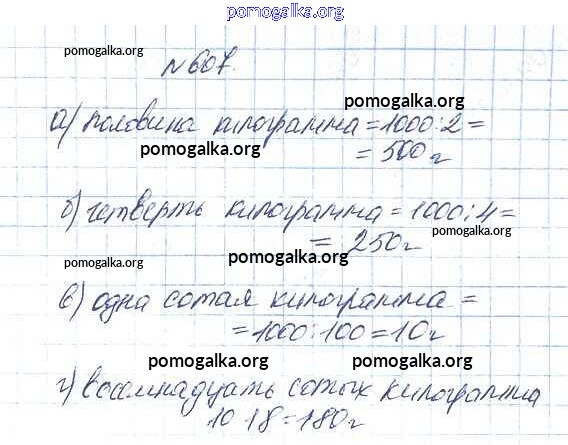 pomogalka.org
pomogalka.org
№607.
pomogalka.org
а) половина килограмма = 1000:2 =
pomogalka.org
= 500 г
б) четверть килограмма = 1000:4 =
pomogalka.org
= 250 г
pomogalka.org pomogalka.org
в) одна сотая килограмма =
= 1000:100 = 10 г
pomogalka.org pomogalka.org
г) восемнадцать сотых килограмма
10·18 = 180 г